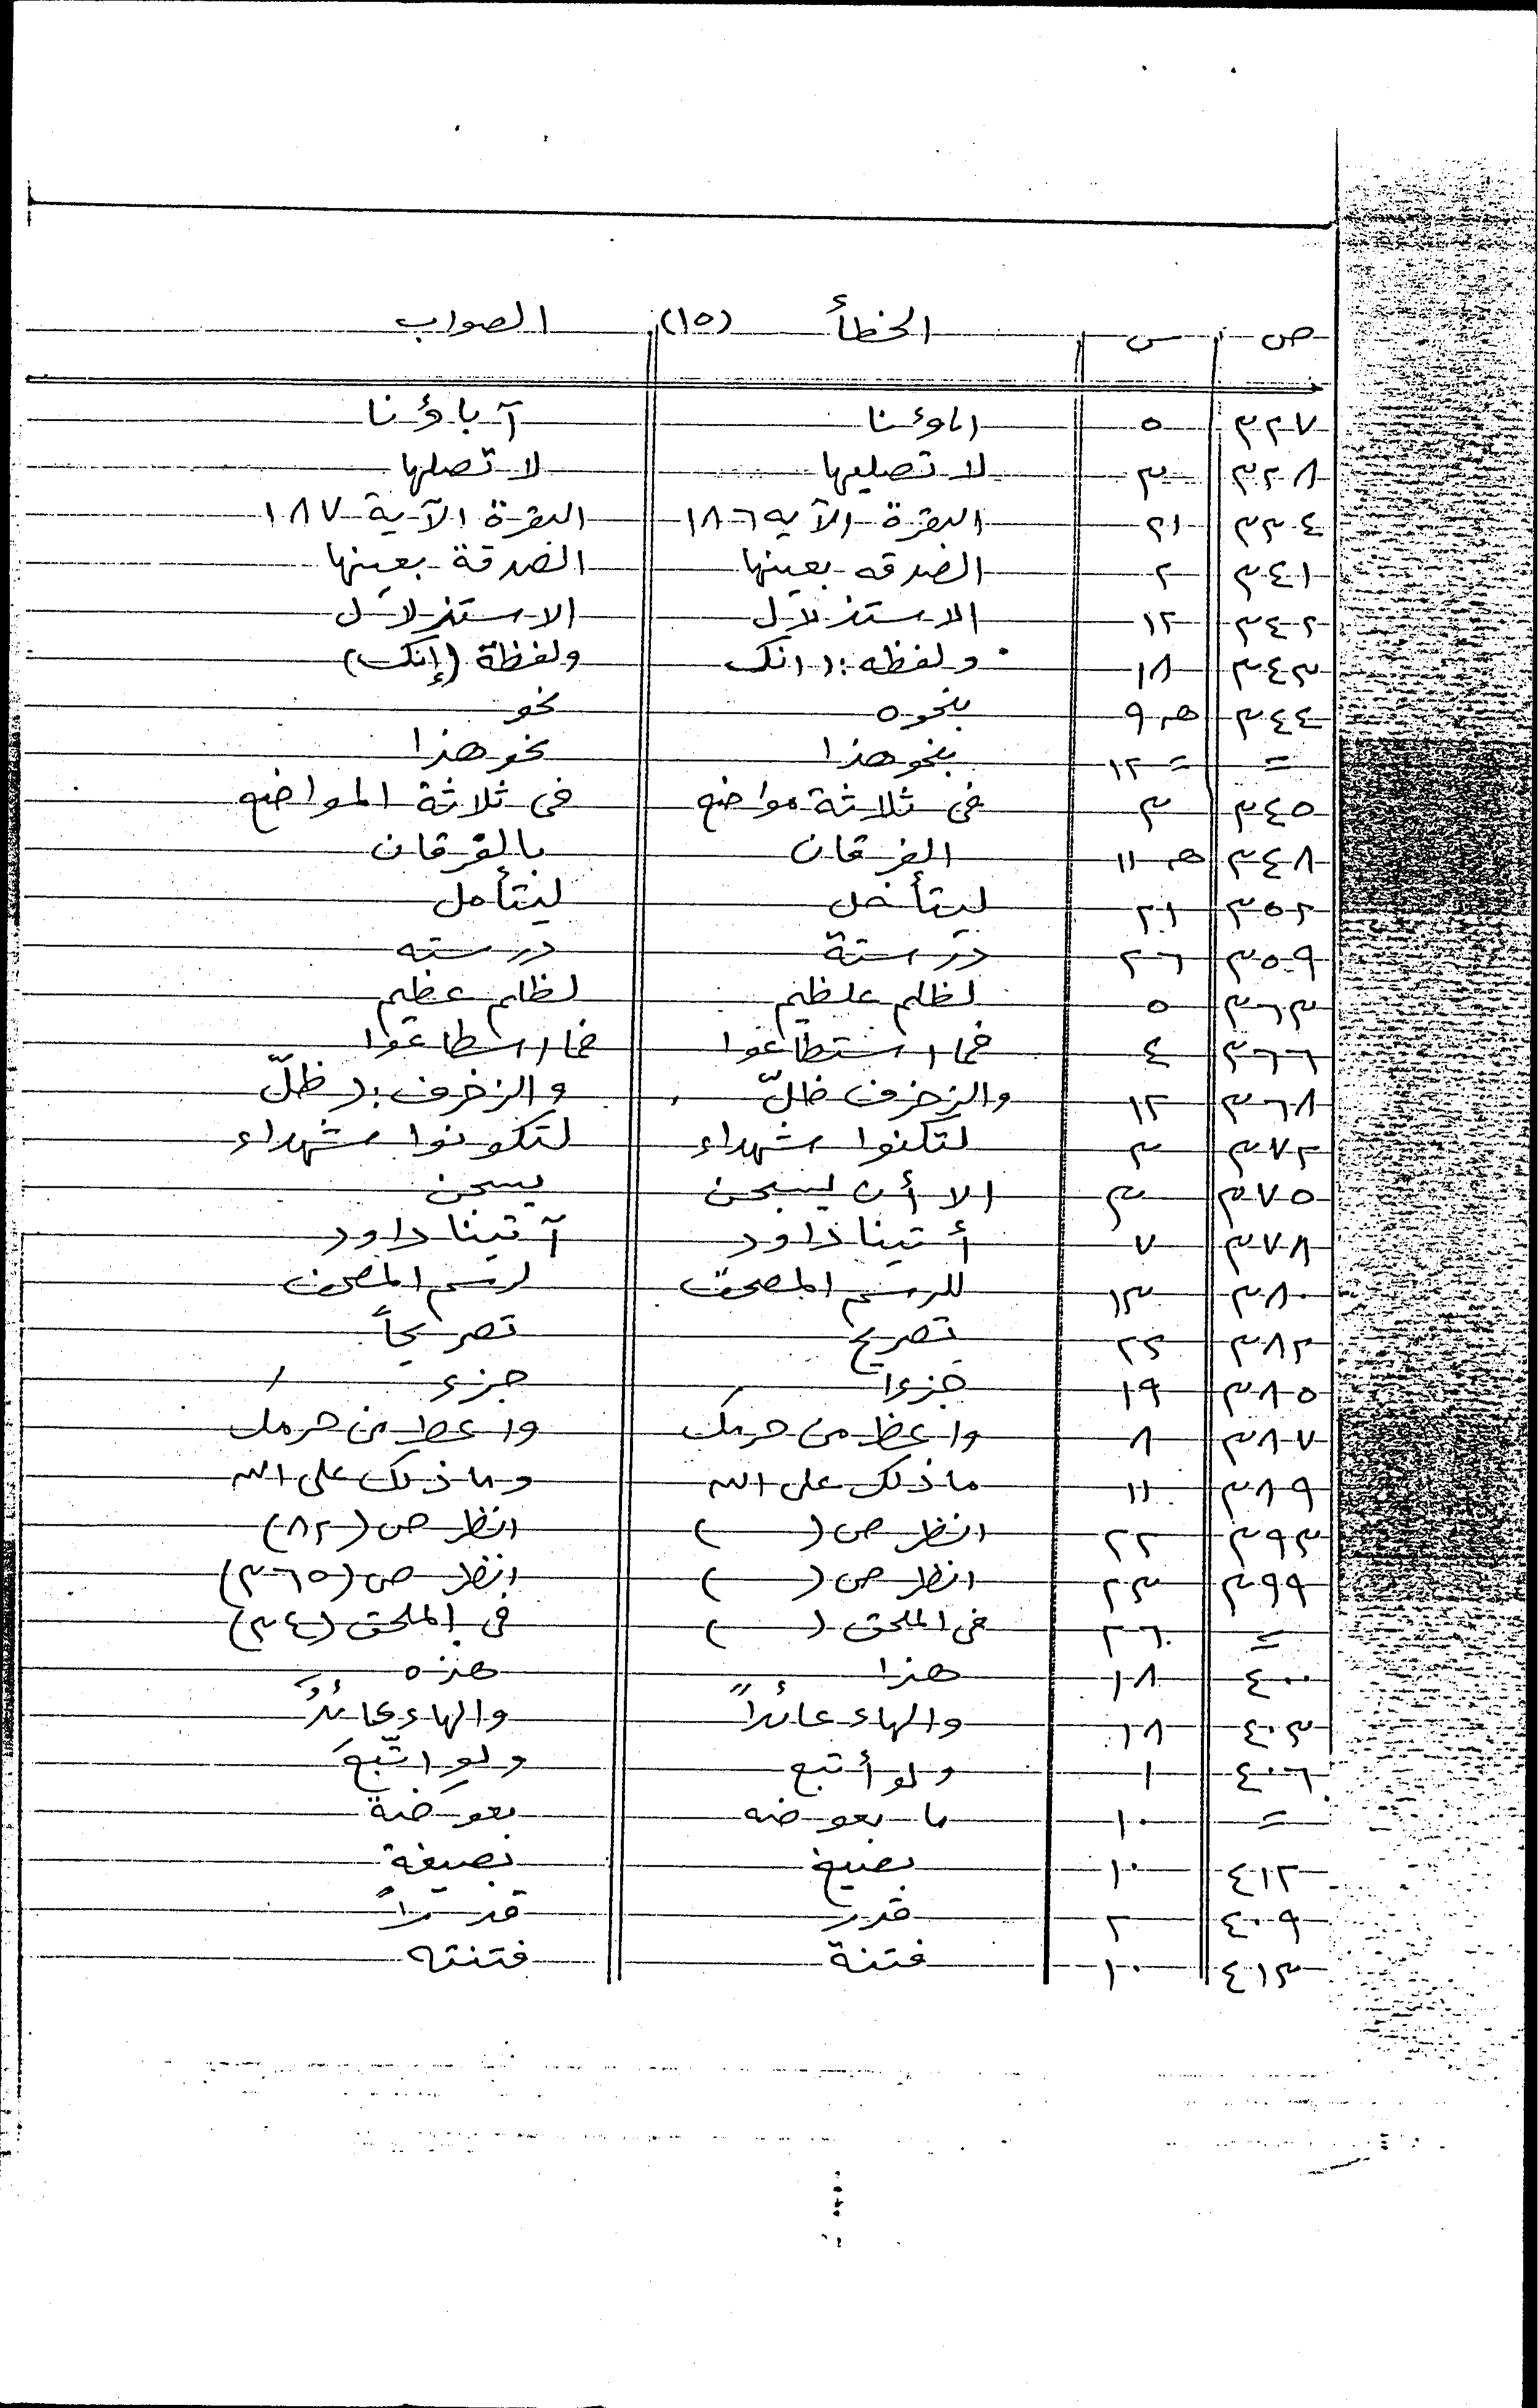 ص س الخطأ (١٥) الصواب
٣٢٧ ٥ اباؤنا آباؤنا
٣٢٨ ٣ لا تصليها لا تصلها
٣٣٤ ٢١ البقرة الآيه ١٨٦ البقرة الآية ١٨٧
٣٤١ ٢ الصدقه بعينها الصدقة بعينها
٣٤٢ ١٢ الاستذلال الاستزلال
٣٤٣ ١٨ ولفظه :(انك ولفظة (إنك)
٣٤٤ هـ ٩ بنحوه نحو
= = ١٢ بنحو هذا نحو هذا
٣٤٥ ٣ فى ثلاثة مواضع فى ثلاثة المواضع
٣٤٨ هـ ١١ الفرقان بالفرقان
٣٥٢ ٢١ ليتأخل ليتأمل
٣٥٩ ٢٦ درستة درسته
٣٦٣ ٥ لظلم علظيم لظلم عظيم
٣٦٦ ٤ فما استطاعوا فما اسطاعوا
٣٦٨ ١٢ والزخرف ظلّ والزخرف :(ظلّ
٣٧٢ ٣ لتكنوا شهداء لتكونوا شهداء
٣٧٥ ٣ الا أن ليسجن يسجن
٣٧٨ ٧ أتينا داود آتينا داود
٣٨٠ ١٣ للرسم المصحف لرسم المصحف
٣٨٢ ٢٤ تصريح تصريحاً
٣٨٥ ١٩ جزءا جزء
٣٨٧ ٨ واعظ من حرمك واعط من حرمك
٣٨٩ ١١ ما ذلك على الله وما ذلك على الله
٣٩٣ ٢٢ انظر ص ( ) انظر ص (٨٢)
٣٩٩ ٢٣ انظر ص ( ) انظر ص (٣٦٥)
= ٢٦ فى الملحق ( ) فى الملحق (٣٤)
٤٠٠ ١٨ هذا هذه
٤٠٣ ١٨ والهاء عائداً والهاء عائدٌ
٤٠٦ ١ ولو أتبع ولو اتّبعَ
= ١٠ ما بعوضه بعوضة
٤١٢ ١٠ بصيغ بصيغة
٤٠٩ ٢ قدر قدراً
٤١٣ ١٠ فتنة فتنته